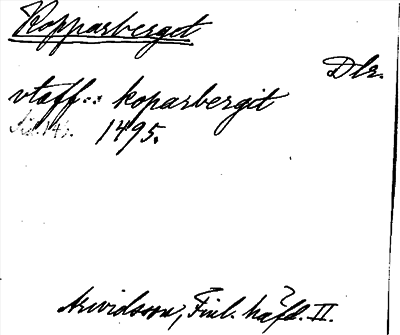 Kopparberget
Dlr.
vtaff:: koparbergit
1495.
Arwidsson, Finl. häfd. II.